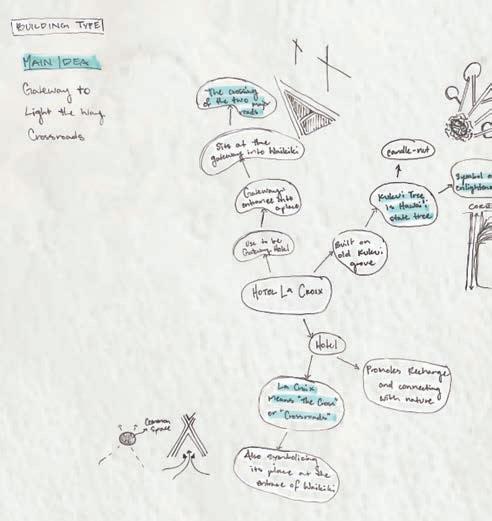 BUILDING TYPE
MAIN IDEA
Gateway to
Light the Way
Crossroads
The crossing
of the two major
roads
Sits at the
gateway into Waikiki
Gateway:
entrance into
a place
Use to be
Gateway Hotel
HOTEL LA CROIX
Built on
old Kukui
grove
Kukui Tree
is Hawaii
state tree
candle-nut
Symbol of
enlighten
CORE
Hotel
Promotes Recharge
and connecting
with nature
La Croix
means "The Cross"
or "Crossroads"
Also symbolizing
its place at the
entrance of Waikiki
Common
Space